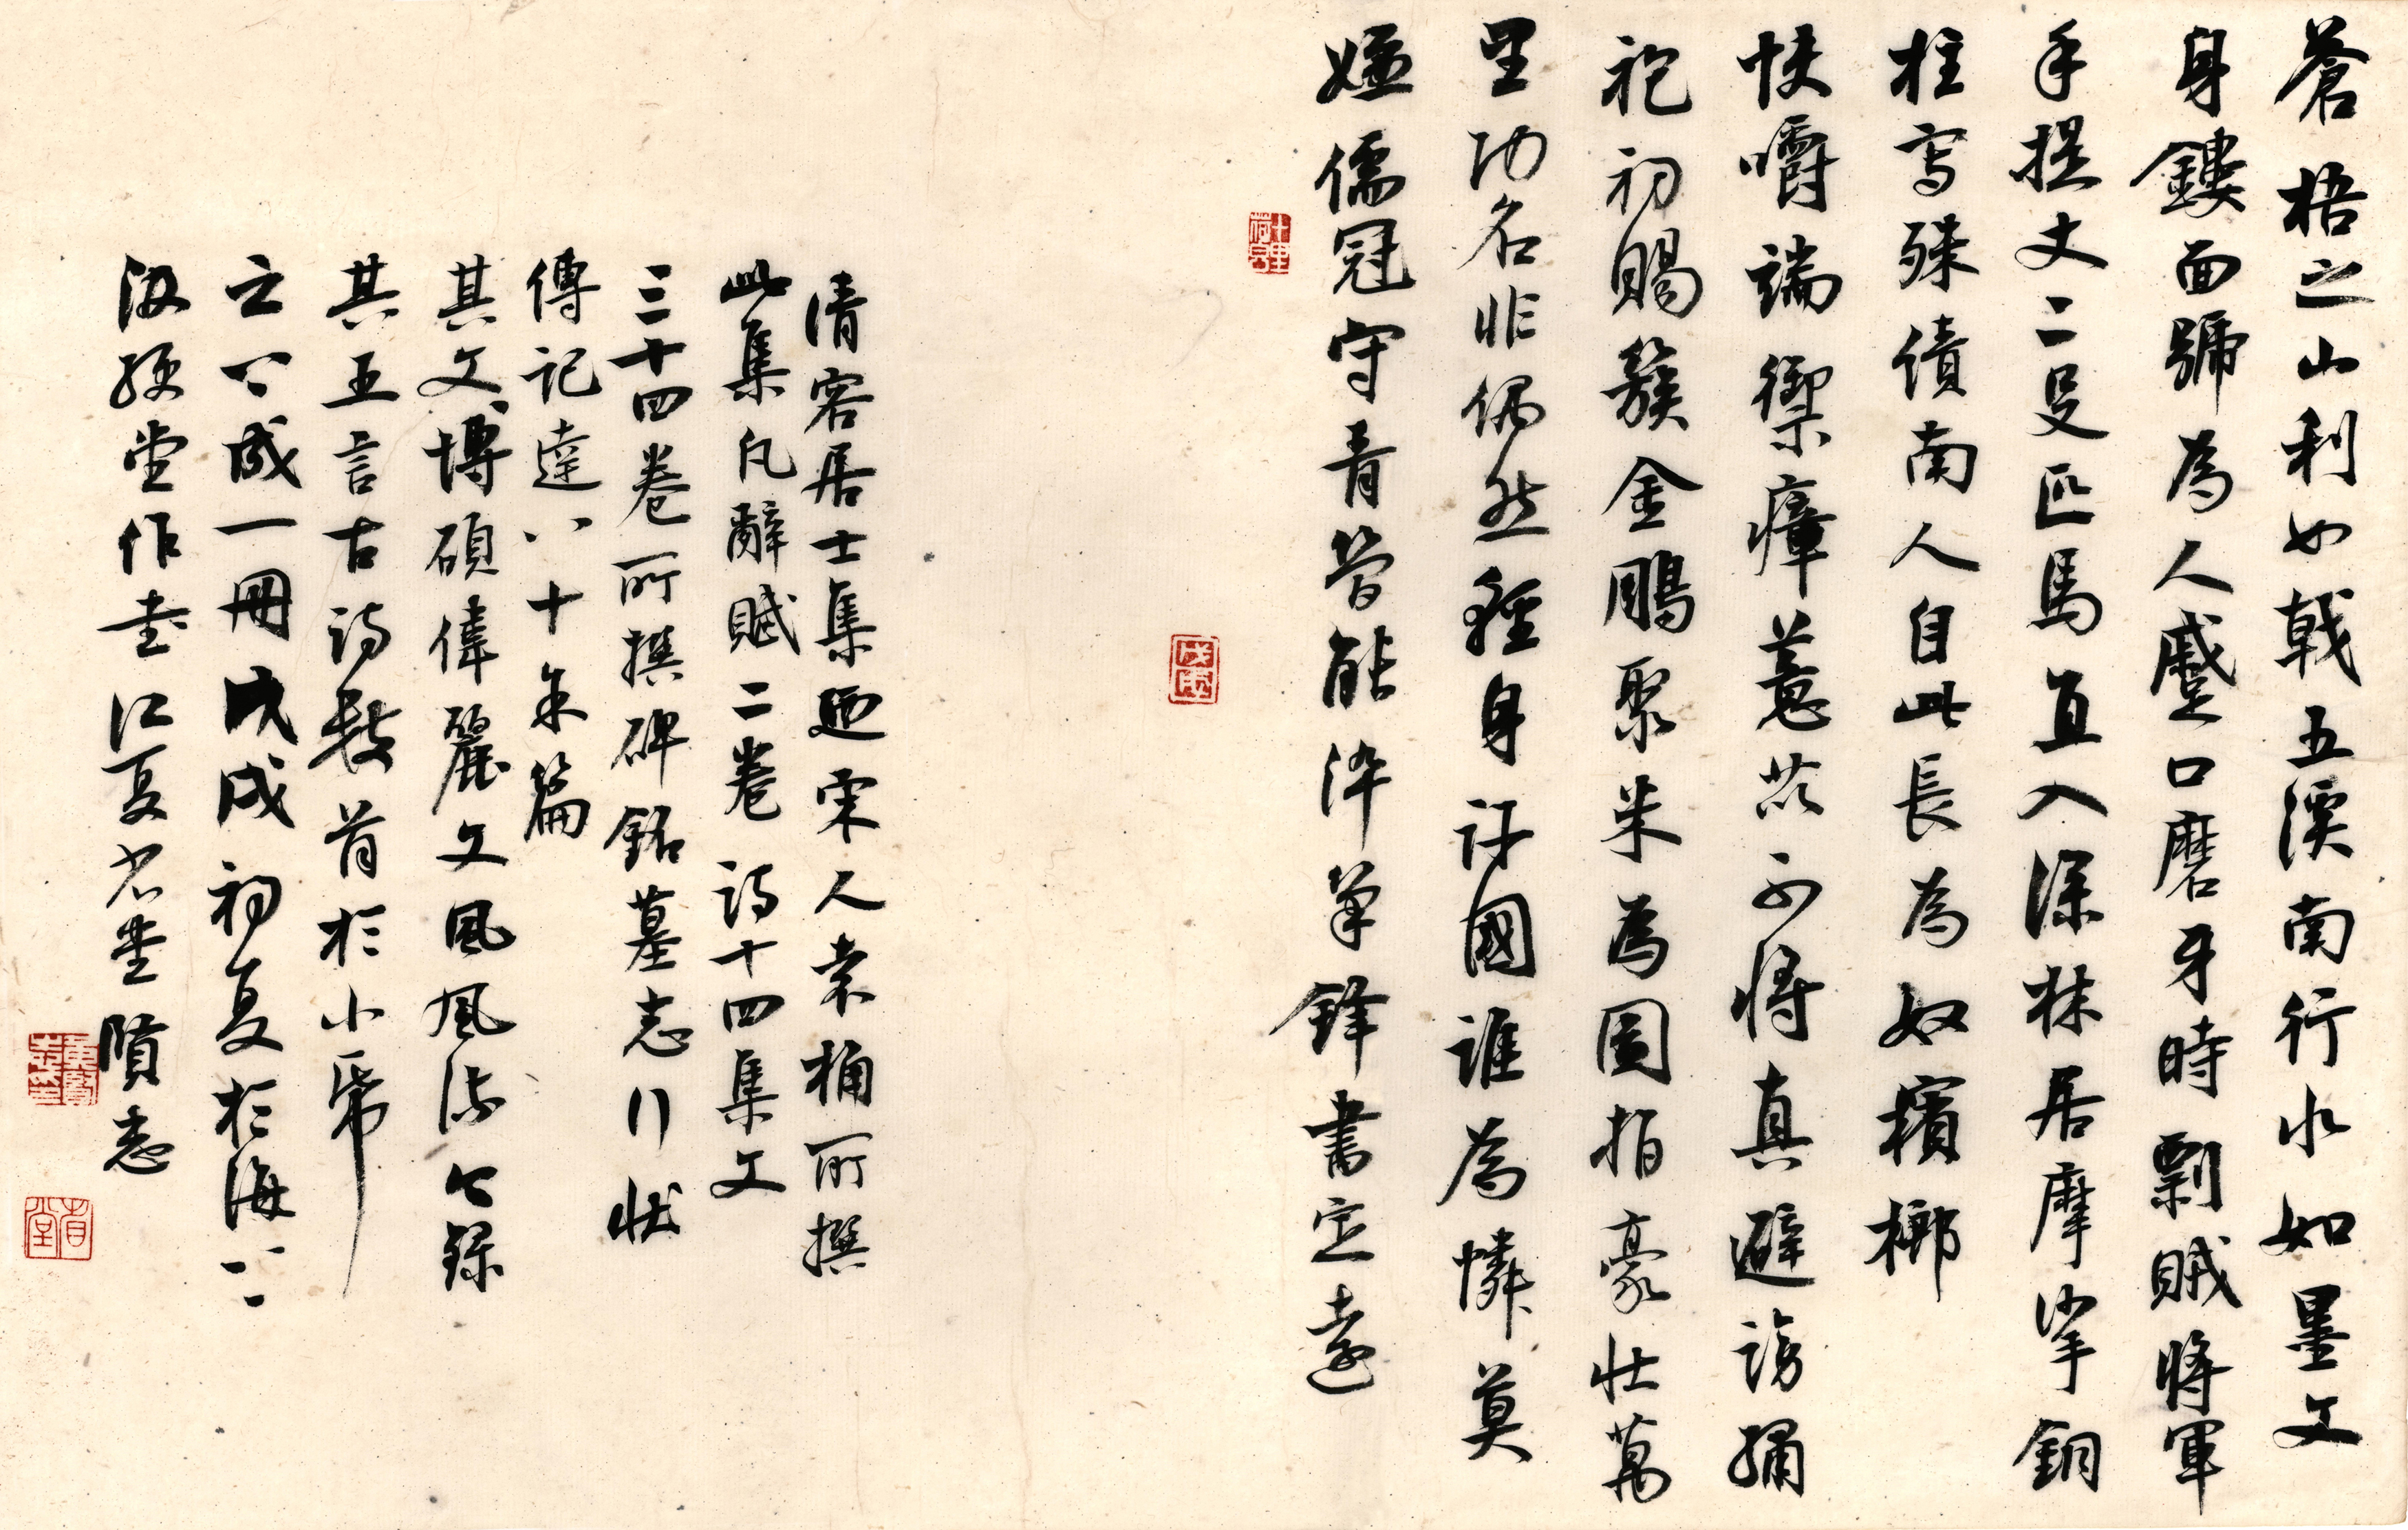 蒼梧之山利如戟五溪南行水如墨文
身鏤面號為人蹙口磨牙時剽賊將軍
手提丈二殳匹馬直入深林居摩挲銅
柱寫殊績南人自此長為奴檳榔
快嚼端禦瘴薏苡不將真避謗繡
袍初賜簇金鵰聚米為圖指豪壯萬
里功名非偶然輕身許國誰為憐莫
嫌儒冠守青能淬筆鋒書定遠
清容居士集迺宋人袁桷所撰
此集凡辭賦二卷詩十四集文
三十四卷所撰碑銘墓志行狀
傳記達八十余篇
其文博碩偉麗文風風流今錄
其五言古詩數首於小帋
成一冊戊戌初夏於海上
汲綆堂作書江夏省堂贇志
戊戌
省堂